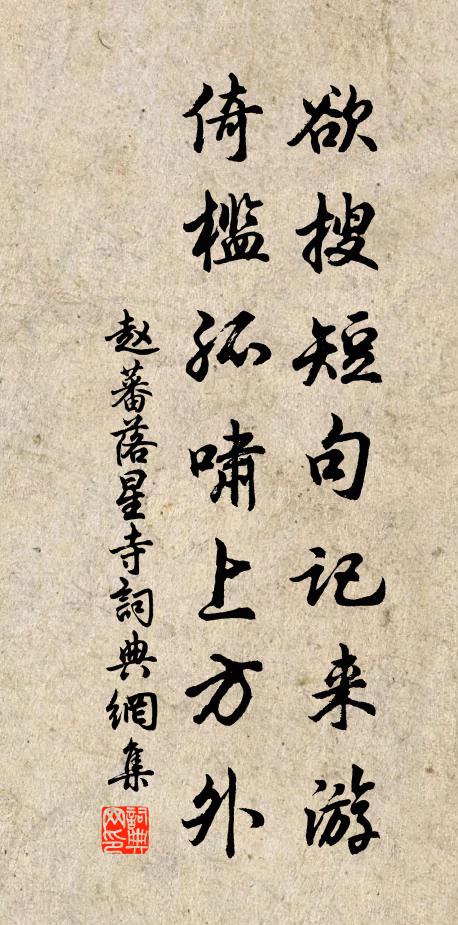 欲搜短句记来游
倚槛孤啸上方外
赵蕃落星寺詞典網集
詞典网印